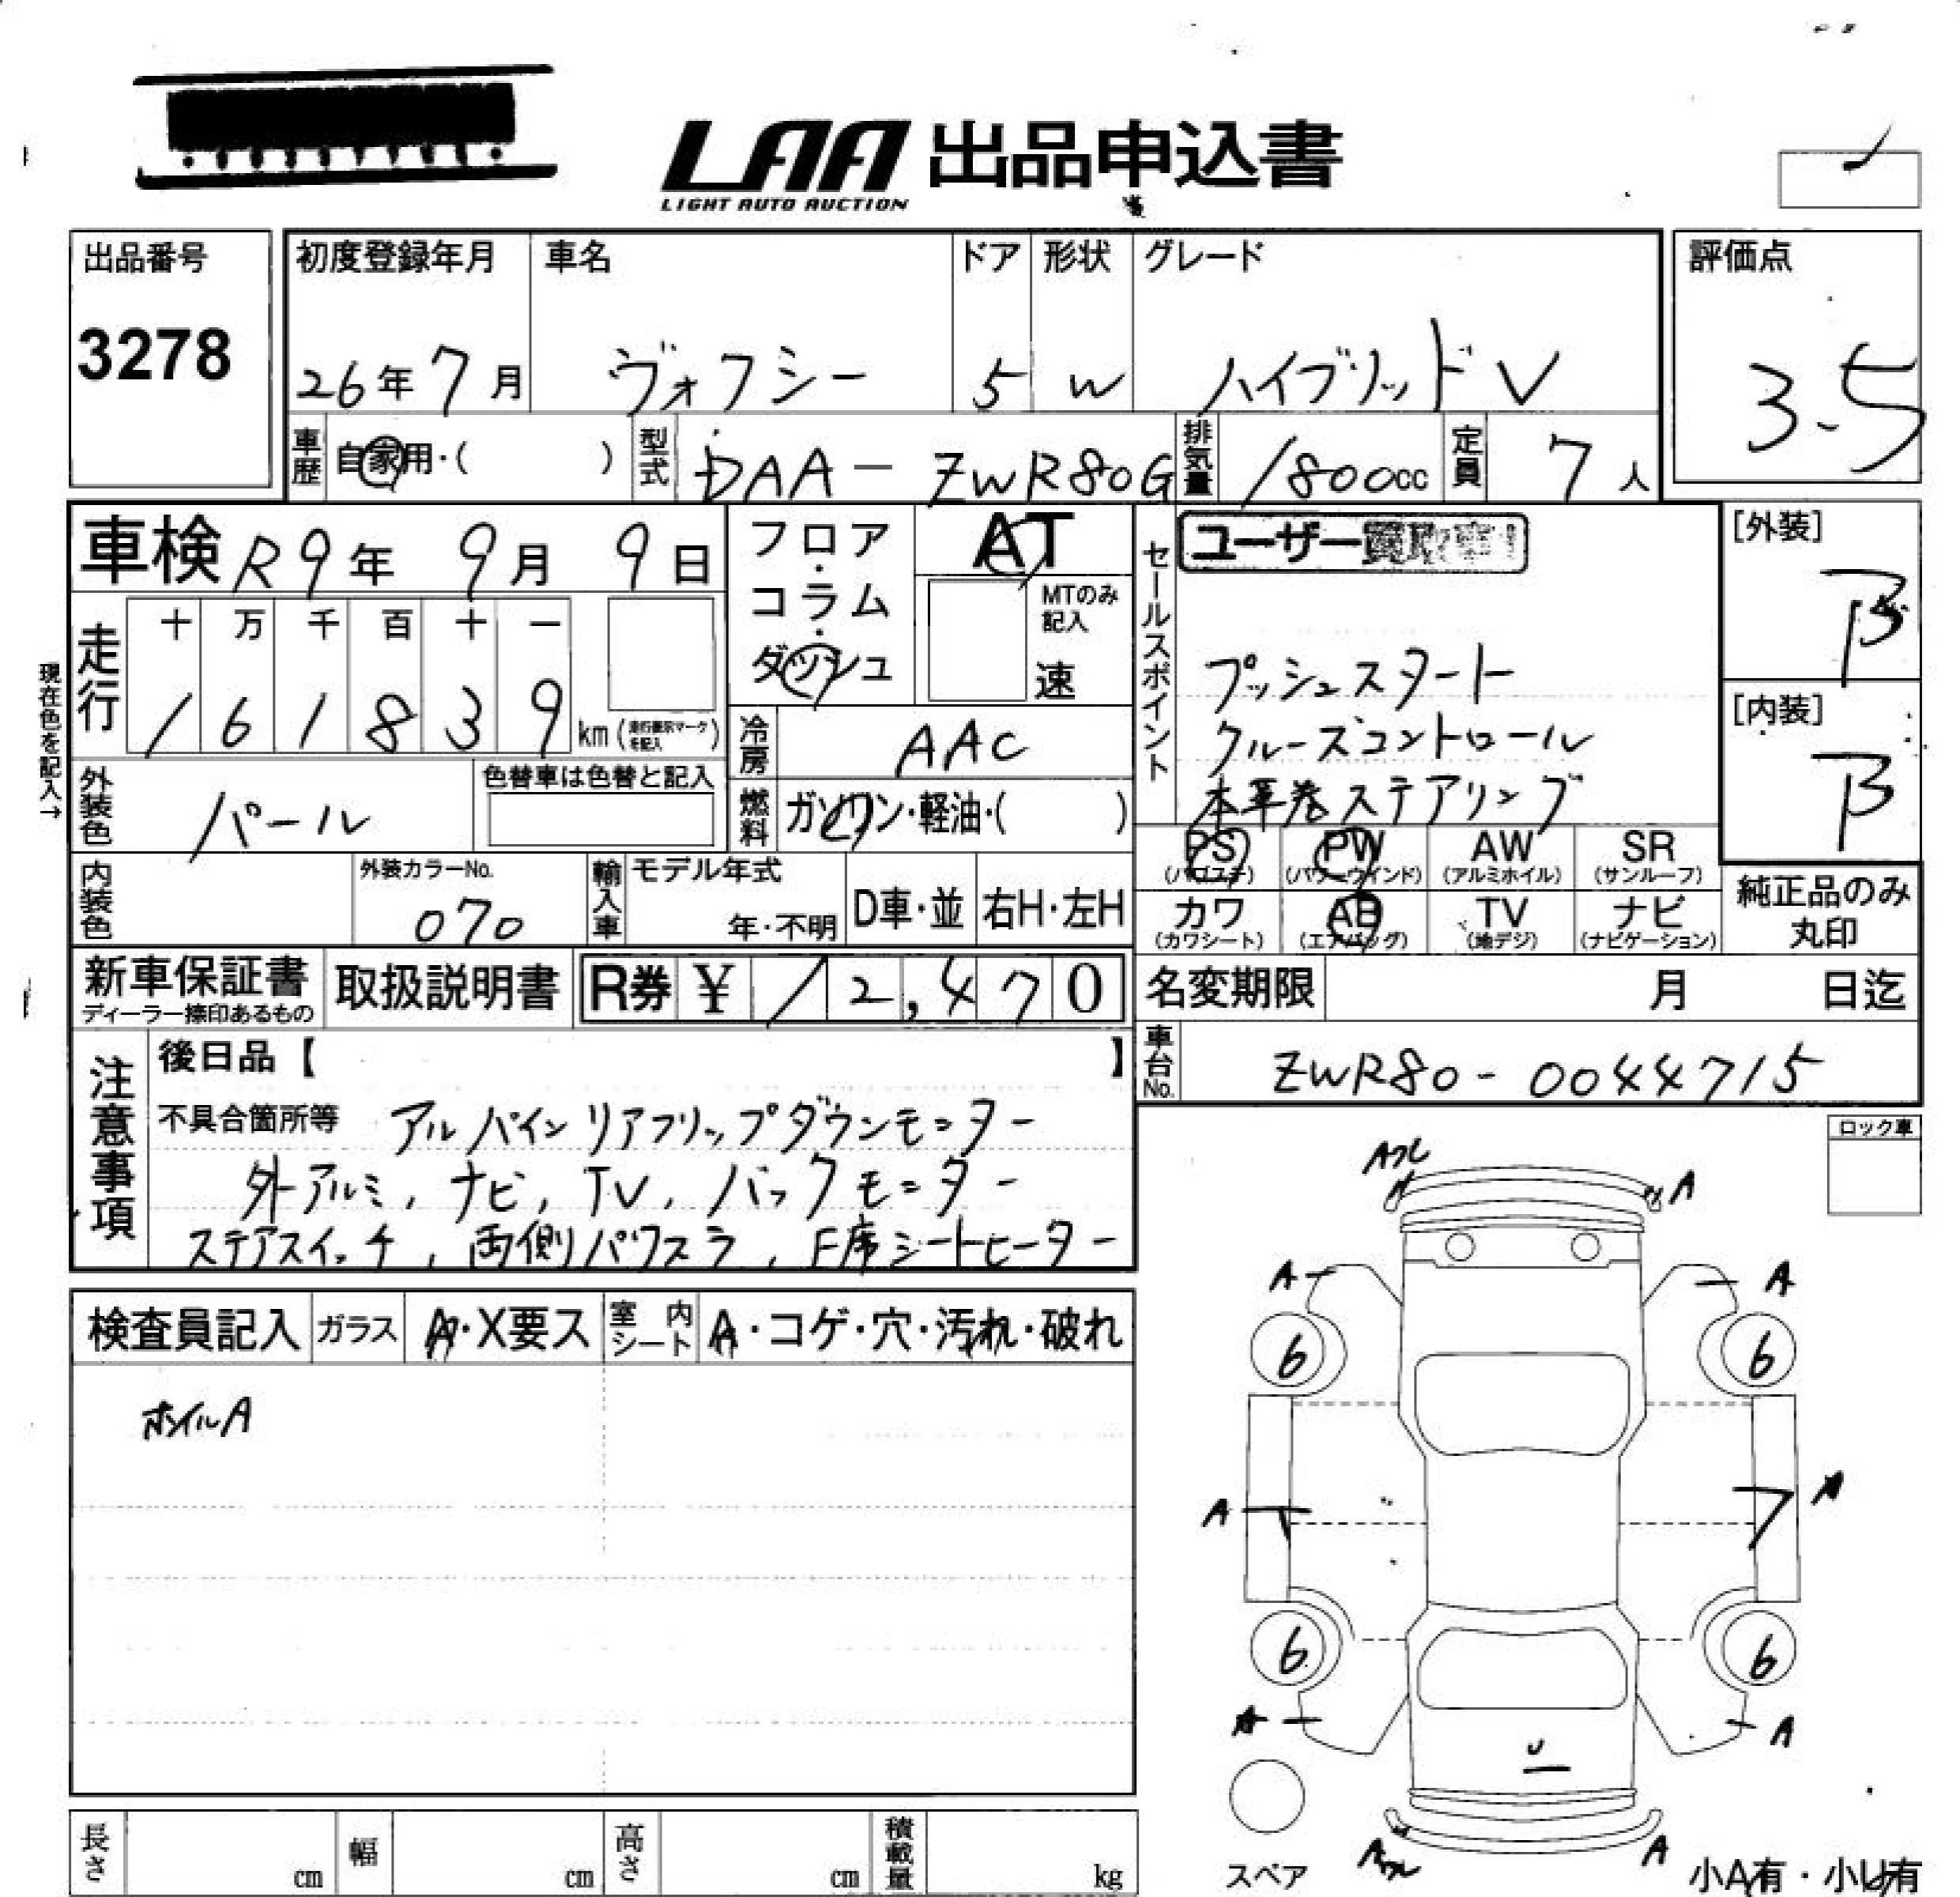 LAA 出品申込書
LIGHT AUTO AUCTION
出品番号
3278
初度登録年月
26年7月
車名
ヴォクシー
ドア
5
形状
W
グレード
ハイブリッドV
評価点
3.5
車歴
自家用・( )
型式
DAA-ZWR80G
排気量
1800cc
定員
7人
車検 R9年 9月 9日
フロア・コラム・ダッシュ
AT
MTのみ記入
速
セールスポイント
ユーザー
プッシュスタート
クルーズコントロール
本革巻ステアリング
[外装]
B
[内装]
B
現在色を記入→
走行
十 万 千 百 十 一
1 6 1 8 3 9 km
冷房
AAC
外装色
パール
色替車は色替と記入
燃料
ガソリン・軽油・( )
PS PW AW SR
(パワステ) (パワーウインド) (アルミホイル) (サンルーフ)
カワ AB TV ナビ
(カワシート) (エアバッグ) (地デジ) (ナビゲーション)
純正品のみ
丸印
内装色
外装カラーNo.
070
輸入車
モデル年式
年・不明
D車・並
右H・左H
新車保証書
ディーラー捺印あるもの
取扱説明書
R券 ¥ 12,470
名変期限 月 日迄
車台No.
ZWR80-0044715
注意事項
後日品【 】
不具合箇所等 アルパインリアフリップダウンモニター
外アルミ, ナビ, TV, バックモニター
ステアスイッチ, 両側パワスラ, F席シートヒーター
ロック車
検査員記入
ガラス
A・X要ス
室内シート
A・コゲ・穴・汚れ・破れ
ホイルA
A
A A
6 6
A A
6 6
A A
U
A
スペア
小A有・小U有
長さ cm
幅 cm
高さ cm
積載量 kg